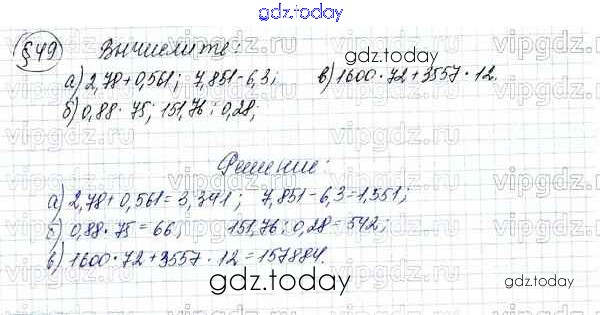 gdz.today
§49 Вычислите: gdz.today
а) 2,78+0,561; 7,851-6,3; в) 1600·72+3557·12.
б) 0,88·75; 151,76:0,28;
Решение:
а) 2,78+0,561=3,341; 7,851-6,3=1,551;
б) 0,88·75=66; 151,76:0,28=542;
в) 1600·72+3557·12=157884.
gdz.today
gdz.today
vipgdz.ru